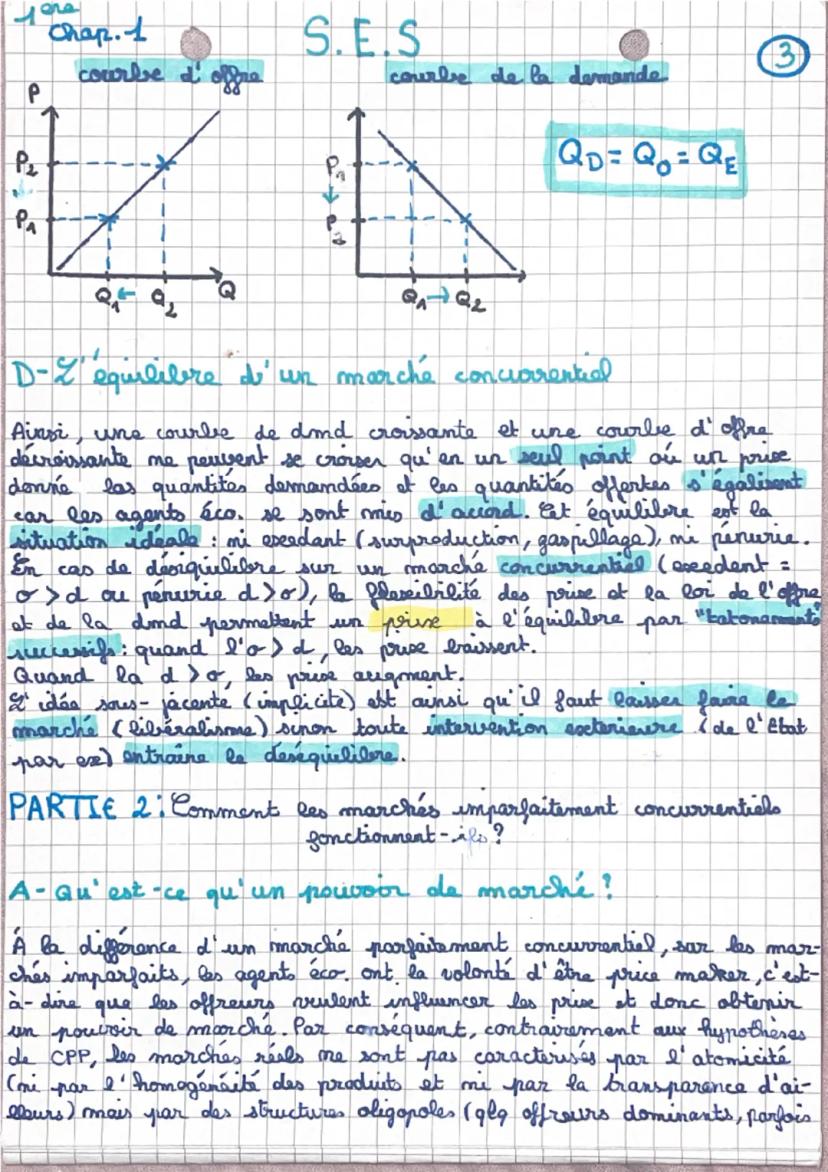 1ère
Chap. 1
S.E.S
3
courbe d'offre
courbe de la demande
P
P2
P1
Q1 ← Q2 Q
P1
P2
Q1 → Q2
QD = QO = QE
D- L'équilibre d'un marché concurrentiel
Ainsi, une courbe de dmd croissante et une courbe d'offre
décroissante ne peuvent se croiser qu'en un seul point où un prixe
donné las quantités demandées et les quantités offertes s'égalisent
car les agents éco. se sont mis d'accord. Cet équilibre est la
situation idéale : ni excedant (surproduction, gaspillage), ni pénurie.
En cas de déséquilibre sur un marché concurrentiel (excedent =
o > d ou pénurie d > o), la flexibilité des prixe et la loi de l'offre
et de la dmd permettent un prixe à l'équilibre par "tatonnements
successifs : quand l'o > d, les prixe baissent.
Quand la d > o, les prixe augment.
L'idée sous-jacente (implicite) est ainsi qu'il faut laisser faire le
marché (libéralisme) sinon toute intervention exterieure (de l'Etat
par ex) entraîne le deséquilibre.
PARTIE 2 : Comment les marchés imparfaitement concurrentiels
fonctionnent-ils ?
A- Qu'est-ce qu'un pouvoir de marché ?
À la différence d'un marché parfaitement concurrentiel, sur les mar-
chés imparfaits, les agents éco. ont la volonté d'être price maker, c'est-
à-dire que les offreurs veulent influencer les prixe et donc obtenir
un pouvoir de marché. Par conséquent, contrairement aux hypothèses
de CPP, les marchés réels ne sont pas caractérisés par l'atomicité
(ni par l'homogénéité des produits et ni par la transparence d'ai-
lleurs) mais par des structures oligopoles (qlq offreurs dominants, parfois